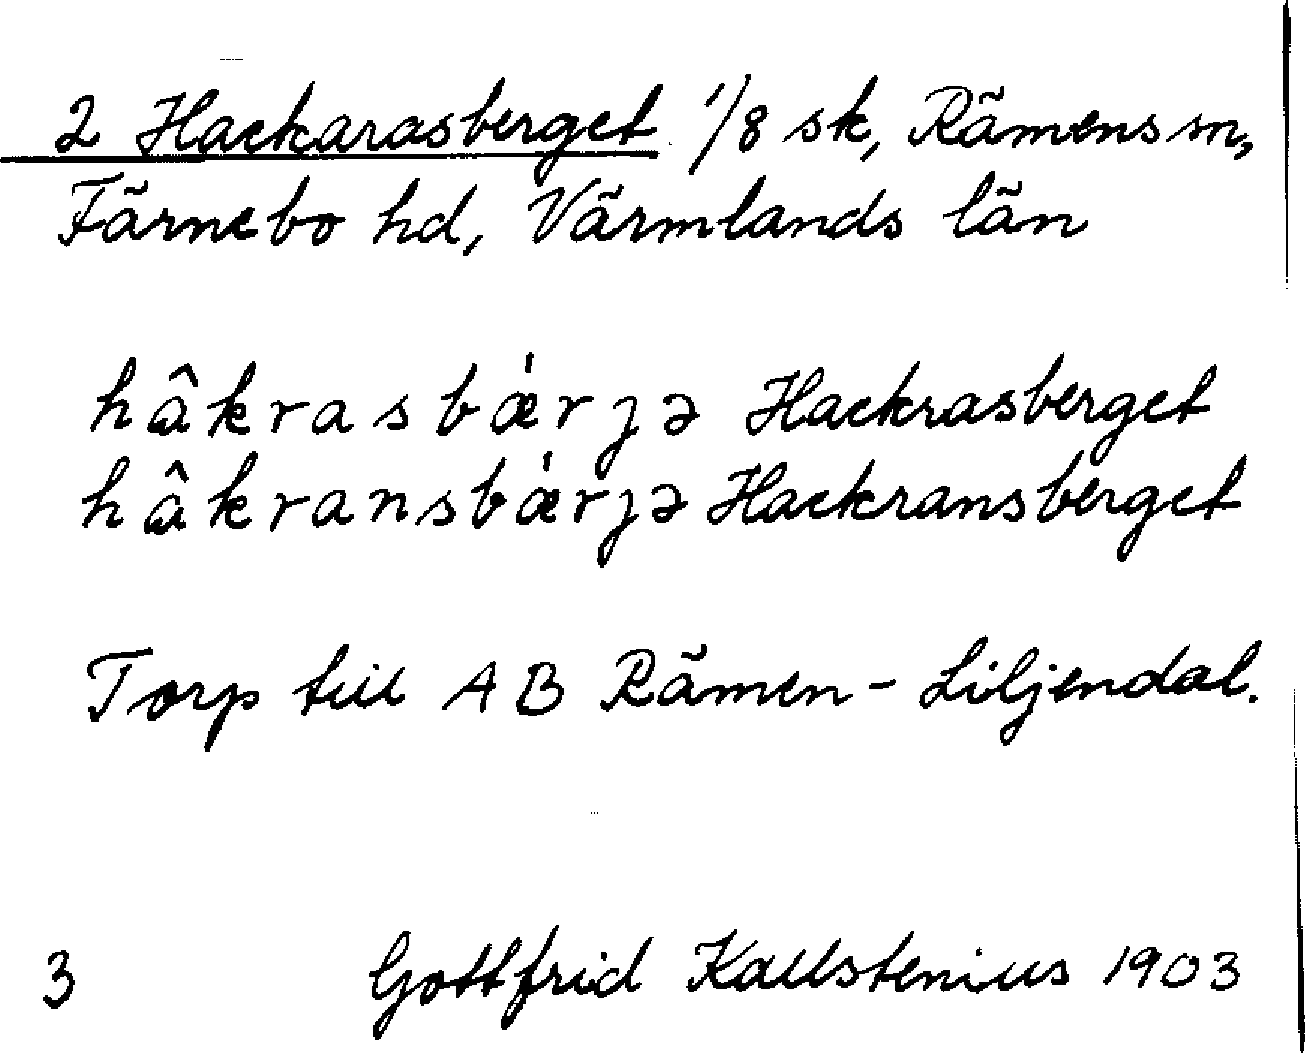 2 Hackarasberget 1/8 sk, Rämens sn,
Färnebo hd, Värmlands län
hâkrasbǽrȷə Hackrasberget
hâkransbǽrȷə Hackransberget
Torp till AB Rämen - Liljendal.
3 Gottfrid Kallstenius 1903